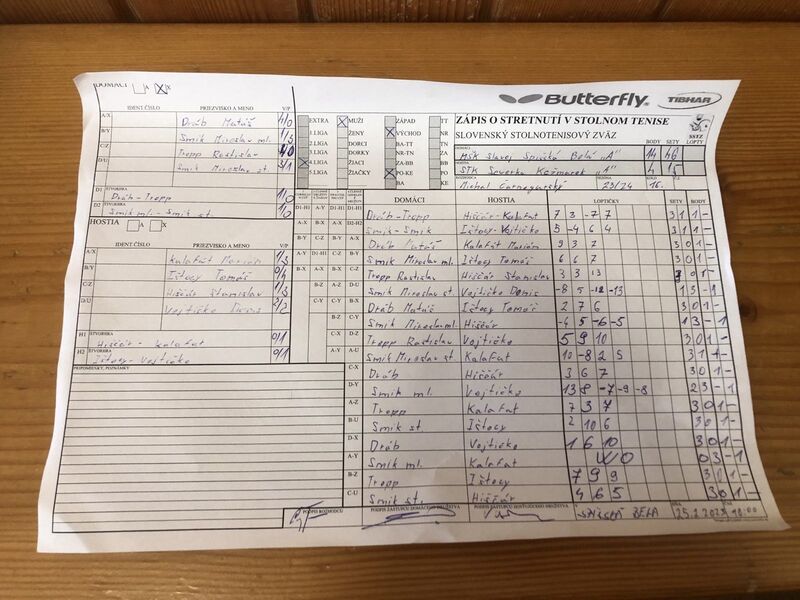 DOMÁCI A X
IDENT. ČÍSLO PRIEZVISKO A MENO V/P
A/X Dráb Matúš 4/0
B/Y Smik Miroslav ml. 1/3
C/Z Tropp Rastislav 4/0
D/U Smik Miroslav st. 3/1
D1 ŠTVORHRA Dráb-Tropp 1/0
D2 ŠTVORHRA Smik ml.-Smik st. 1/0
HOSTIA A X
IDENT. ČÍSLO PRIEZVISKO A MENO V/P
A/X Kalafut Marián 1/3
B/Y Ištocy Tomáš 0/4
C/Z Hiščár Stanislav 1/3
D/U Vojtičko Denis 2/2
H1 ŠTVORHRA Hiščár-Kalafut 0/1
H2 ŠTVORHRA Ištocy-Vojtičko 0/1
PRIPOMIENKY, POZNÁMKY
Butterfly TIBHAR
EXTRA MUŽI ZÁPAD TT
1.LIGA ŽENY VÝCHOD NR
2.LIGA DORCI BA-TT TN
3.LIGA DORKY NR-TN ZA
4.LIGA ŽIACI ZA-BB BB
5.LIGA ŽIAČKY PO-KE PO
BA KE
ZÁPIS O STRETNUTÍ V STOLNOM TENISE
SLOVENSKÝ STOLNOTENISOVÝ ZVÄZ
SSTZ
DOMÁCI BODY SETY LOPTY
MŠK Slavoj Spišská Belá "A" 14 46
STK Severka Kežmarok "A" 4 15
Michal Carnogurský 23/24 16.
DOMÁCI HOSTIA LOPTIČKY SETY BODY
Dráb-Tropp Hiščár-Kalafut 7 3 -7 7 3 1 1 -
Smik-Smik Ištocy-Vojtičko 5 -4 6 4 3 1 1 -
Dráb Matúš Kalafut Marián 9 3 7 3 0 1 -
Smik Miroslav ml. Ištocy Tomáš 6 6 7 3 0 1 -
Tropp Rastislav Hiščár Stanislav 3 3 13 3 0 1 -
Smik Miroslav st. Vojtičko Denis -8 5 -12 -13 1 3 - 1
Dráb Matúš Ištocy Tomáš 2 7 6 3 0 1 -
Smik Miroslav ml. Hiščár -4 5 -6 -5 1 3 - 1
Tropp Rastislav Vojtičko 5 9 10 3 0 1 -
Smik Miroslav st Kalafut 10 -8 2 5 3 1 1 -
C-X Dráb Hiščár 3 6 7 3 0 1 -
D-Y Smik ml. Vojtičko 13 8 -7 -9 -8 2 3 - 1
A-Z Tropp Kalafut 7 3 7 3 0 1 -
B-U Smik st. Ištocy 2 10 6 3 0 1 -
D-X Dráb Vojtičko 1 6 10 3 0 1 -
A-Y Smik ml. Kalafut WO 0 3 - 1
B-Z Tropp Ištocy 7 9 9 3 0 1 -
C-U Smik st. Hiščár 4 6 5 3 0 1 -
PODPIS ROZHODCU PODPIS ZÁSTUPCU DOMÁCEHO DRUŽSTVA PODPIS ZÁSTUPCU HOSŤUJÚCEHO DRUŽSTVA V SPIŠSKÁ BELÁ DŇA